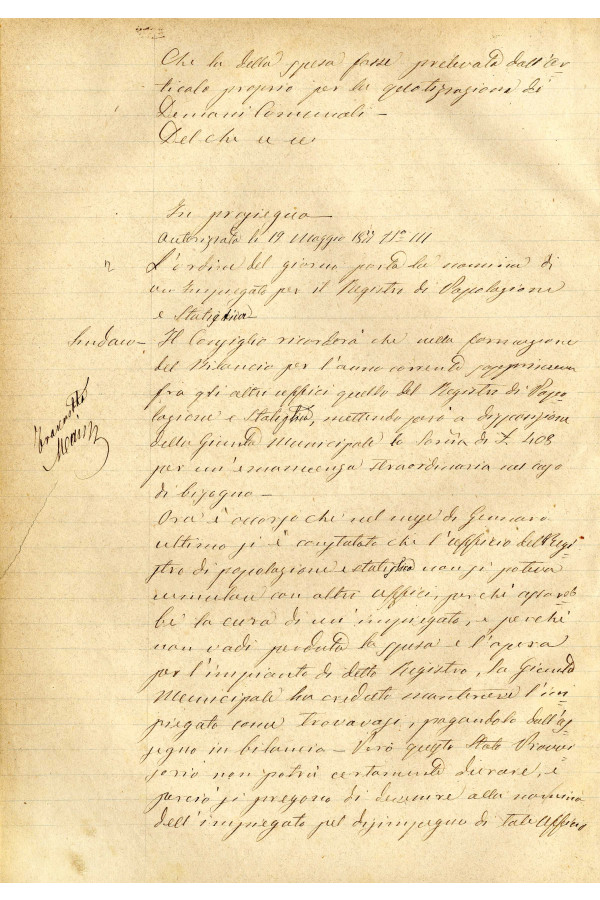 Che la detta spesa fosse prelevata dall'ar-
ticolo proprio per la quotizzazione di
Demani Comunali -
Del che
In prosieguo
Autorizzata li 19 Maggio
2 L'ordine del giorno porta la nomina di
un Impiegato per il Registro di Popolazione
e Statistica -
Sindaco - Il Consiglio ricorderà che nella formazione
del Bilancio per l'anno corrente soppresse
fra gli altri uffici quello del Registro di Popo-
lazione e Statistica, mettendo però a disposizione
della Giunta Municipale la Somma di £. 408
per un'emergenza straordinaria nel caso
di bisogno -
Ora è occorso che nel mese di Gennaro
ultimo si è constatato che l'ufficio del Regi-
stro di popolazione e statistica non si poteva
cumulare con altri uffici, perchè assorb-
be la cura di un'impiegato, e perchè
non vadi perduta la spesa e l'opera
per l'impianto di detto Registro, la Giunta
Municipale ha creduto mantenere l'im-
piegato come trovavasi, pagandolo dall'as-
segno in bilancio - Però questo Stato Provvi-
sorio non potrà certamente durare, e
perciò si pregono di devenire alla nomina
dell'impiegato pel disimpegno di tale Ufficio